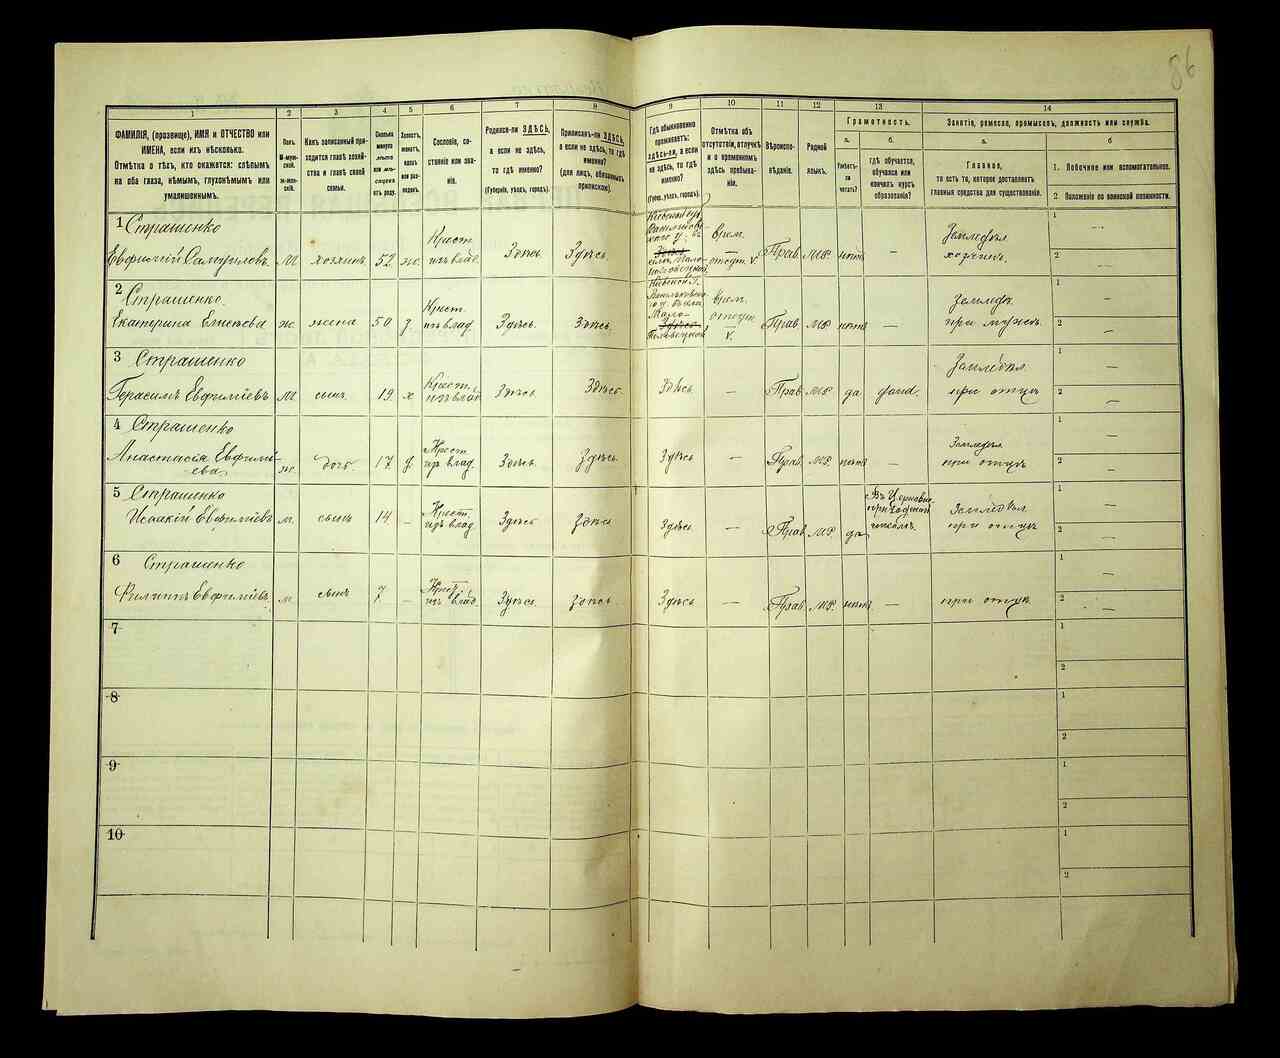 86
1
2
3
4
5
6
7
8
9
10
11
12
13
14
ФАМИЛІЯ, (прозвище), ИМЯ и ОТЧЕСТВО или
ИМЕНА, если ихъ нѣсколько.
Отмѣтка о тѣхъ, кто окажется: слѣпымъ
на оба глаза, нѣмымъ, глухонѣмымъ или
умалишеннымъ.
Полъ.
М-мужской.
Ж-женскій.
Какъ записанный приходится главѣ хозяйства и главѣ своей
семьи.
Сколько
минуло
лѣтъ
или мѣсяцевъ
отъ роду.
Холостъ,
женатъ,
вдовъ
или разведенъ.
Сословіе, состояніе или званіе.
Родился-ли ЗДѢСЬ,
а если не здѣсь,
то гдѣ именно?
(Губернія, уѣздъ, городъ).
Приписанъ-ли ЗДѢСЬ,
а если не здѣсь, то гдѣ
именно?
(для лицъ, обязанныхъ
припискою).
Гдѣ обыкновенно
проживаетъ:
здѣсь-ли, а если
не здѣсь, то гдѣ
именно?
(Губер., уѣздъ, городъ).
Отмѣтка объ
отсутствіи, отлучкѣ
и о временномъ
здѣсь пребываніи.
Вѣроисповѣданіе.
Родной
языкъ.
Грамотность.
а.
Умѣетъ-ли
читать?
б.
гдѣ обучается,
обучался или
кончилъ курсъ
образованія?
Занятіе, ремесло, промыселъ, должность или служба.
а.
Главное,
то есть то, которое доставляетъ
главныя средства для существованія.
б.
1. Побочное или вспомогательное.
2. Положеніе по воинской повинности.
1 Страшенко
Евфимій Самуиловъ м хозяинъ 52 ж. Крест. изъ влад. Здѣсь Здѣсь. Врем. отсут. Прав. мр. нѣтъ — Земледѣл. хозяинъ.
2 Страшенко.
Екатерина Елисѣева ж. жена 50 з. Крест. изъ влад. Здѣсь. Здѣсь. Врем. отсут. Прав. мр. нѣтъ — Земледѣ. при мужѣ.
3 Страшенко
Герасимъ Евфиміевъ м сынъ 19 х Крест. изъ влад. Здѣсь. Здѣсь Здѣсь. — Прав. мр. да Земледѣл. при отцѣ
4 Страшенко
Анастасія Евфиміева ж. дочь. 17 д. Крест. изъ влад. Здѣсь. Здѣсь. Здѣсь — Прав. мр. нѣтъ — Земледѣл. при отцѣ
5 Страшенко
Исаакій Евфиміевъ м. сынъ 14 — Крест. изъ влад. Здѣсь Здѣсь Здѣсь — Прав. мр. да Въ Церковно приходской школѣ Земледѣл. при отцѣ
6 Страшенко
Филиппъ Евфиміевъ м. сынъ 7 — Крест. изъ влад. Здѣсь. Здѣсь. Здѣсь — Прав. мр. нѣтъ — при отцѣ.
7
8
9
10